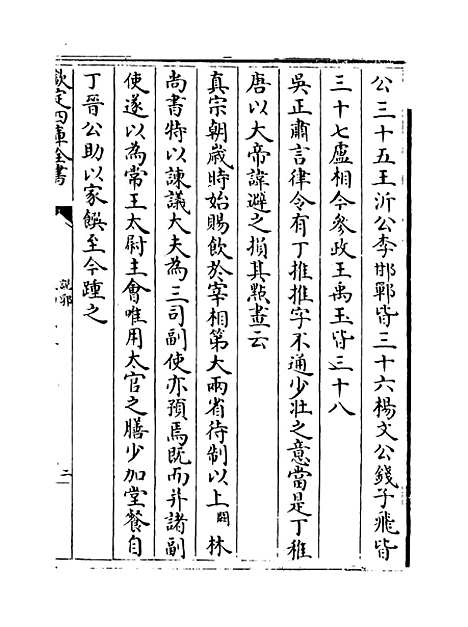 公三十五王沂公李邯鄲皆三十六楊文公錢子飛皆
三十七盧相今參政王禹玉皆三十八
吳正肅言律令有丁推推字不通少壯之意當是丁稚
唐以大帝諱避之損其點畫云
真宗朝歲時始賜飲於宰相第大兩省待制以上闕林
尚書特以諫議大夫為三司副使亦預焉既而并諸副
使遂以為常王太尉主會唯用太官之膳少加堂餐自
丁晉公助以家饌至今踵之
欽定四庫全書
說郛
二